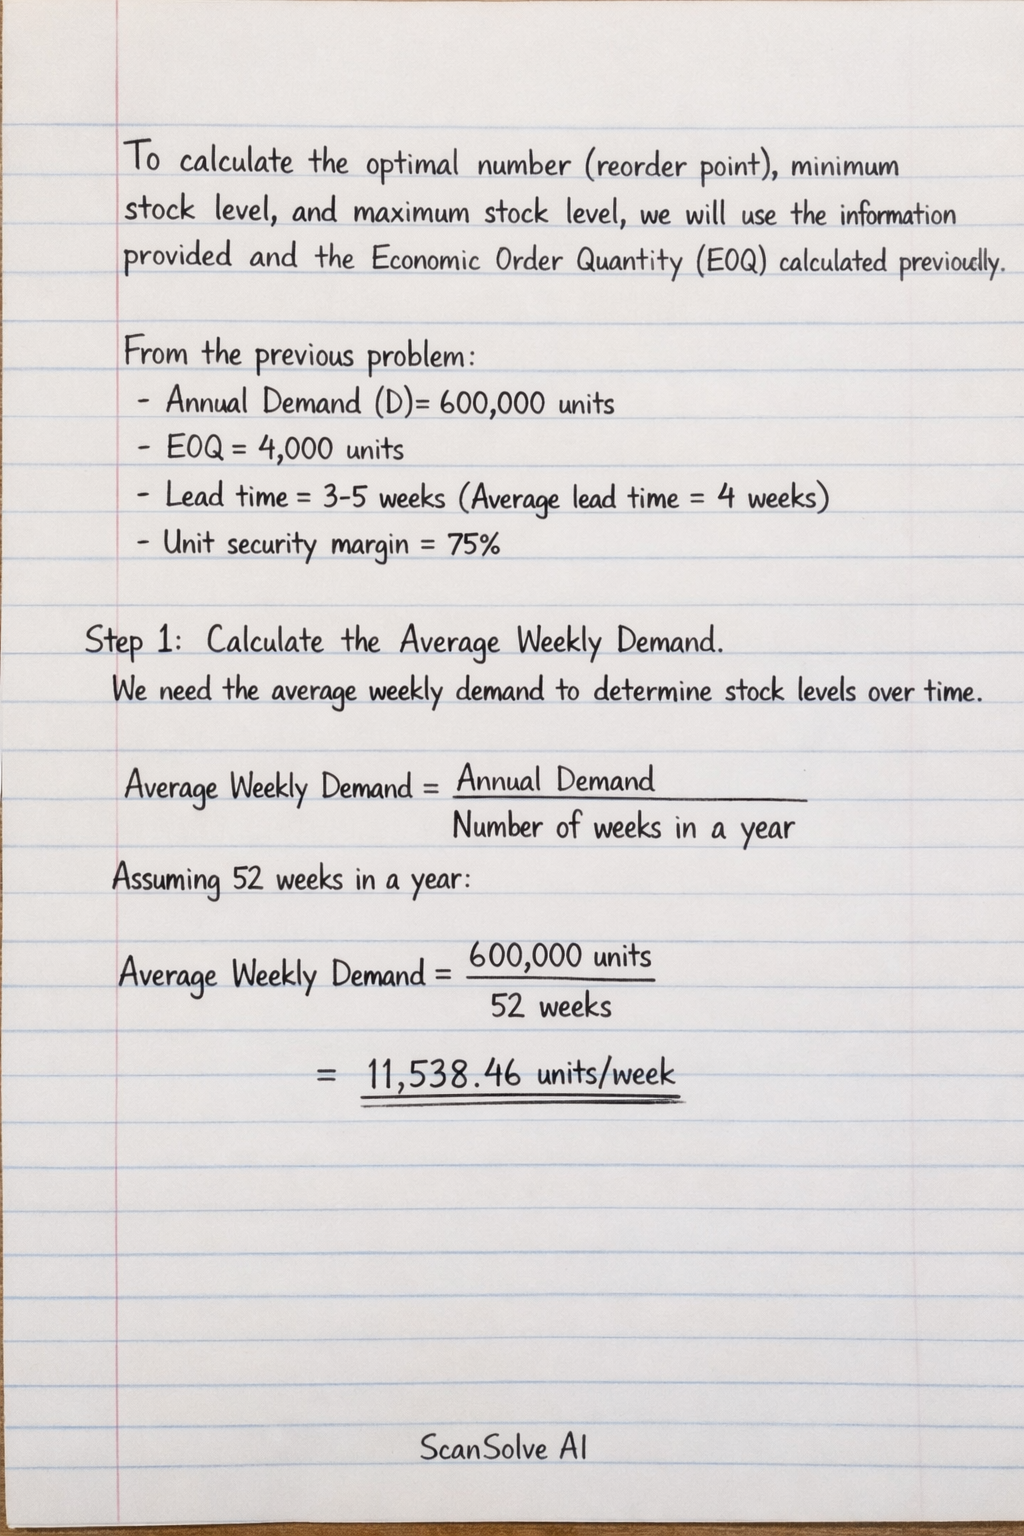 To calculate the optimal number (reorder point), minimum
stock level, and maximum stock level, we will use the information
provided and the Economic Order Quantity (EOQ) calculated previously.
From the previous problem:
- Annual Demand (D)= 600,000 units
- EOQ = 4,000 units
- Lead time = 3-5 weeks (Average lead time = 4 weeks)
- Unit security margin = 75%
Step 1: Calculate the Average Weekly Demand.
We need the average weekly demand to determine stock levels over time.
Average Weekly Demand = Annual Demand
Number of weeks in a year
Assuming 52 weeks in a year:
Average Weekly Demand = 600,000 units
52 weeks
= 11,538.46 units/week
ScanSolve AI